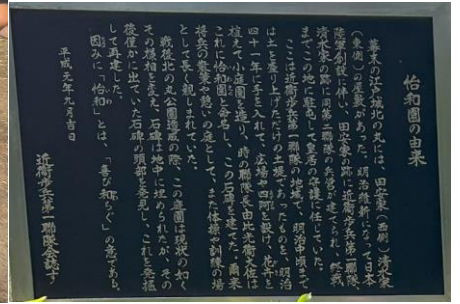 怡和園の由来
幕末の江戸城北の丸には、田安家(西側)清水家
(東側)の屋敷があった。明治維新になって日本
陸軍創設に伴い、田安家の跡に近衛歩兵第一聯隊、
清水家の跡に同第二聯隊の兵営が建てられ、終戦
までこの地に駐屯して皇居の守護に任じていた。
ここは近衛歩兵第一聯隊の地域で、明治の頃まで
は土を盛り上げただけの土堤であったものを、明治
四十一年に手を入れて、広場や四阿を設け、花卉を
植えて小庭園を造り、時の聯隊長由比光衛大佐は
これに怡和園と命名し、この石碑を建てた。爾来
将兵の奮策や憩いの庭として、また体操や訓練の場
として長く親しまれていた。
戦後北の丸公園造成の際、この庭園は現状の如く
その様相を変え、石碑は地中に埋められたが、その
後僅かに出ていた石碑の頭部を発見し、これを発掘
して再建した。
因みに「怡和」とは、「喜び和らぐ」の意である。
平成元年九月吉日
近衛歩兵第一聯隊会有志